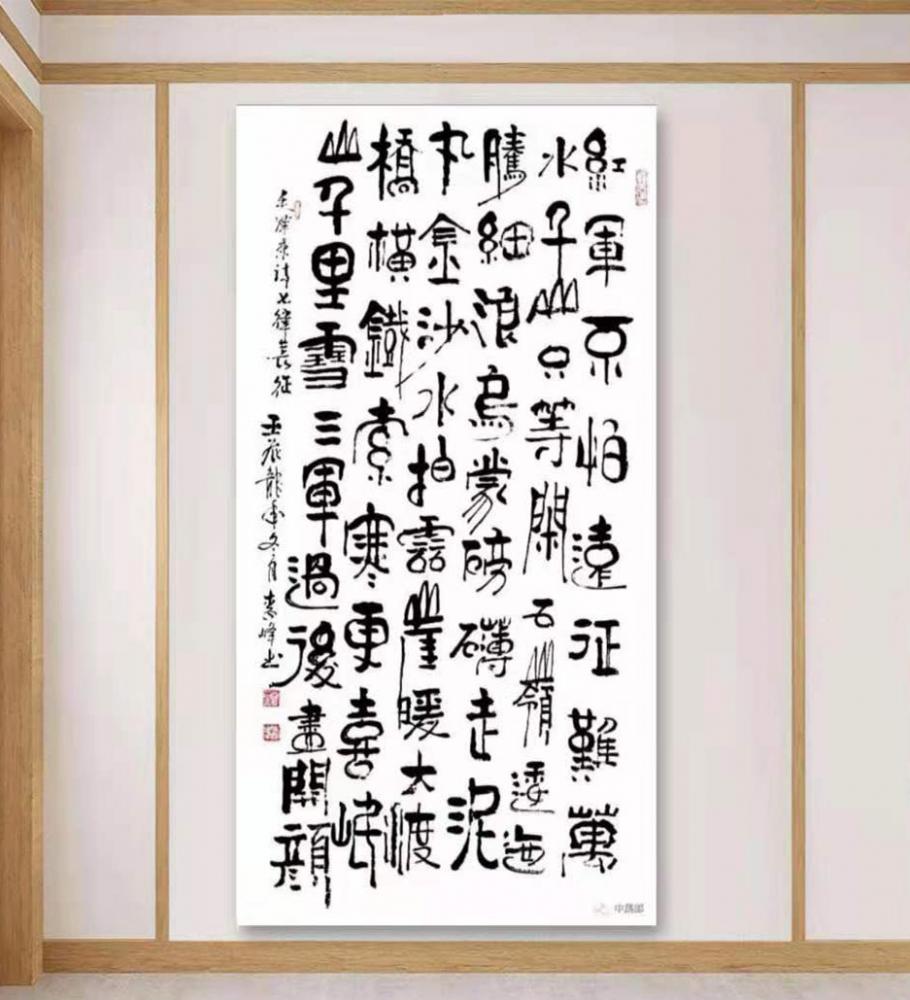 紅軍不怕遠征難萬
水千山只等閑五嶺逶迤
騰細浪烏蒙磅礴走泥
丸金沙水拍雲崖暖大渡
橋橫鐵索寒更喜岷
山千里雪三軍過後盡開顏
毛澤東詩七律長征
壬辰龍年冬月